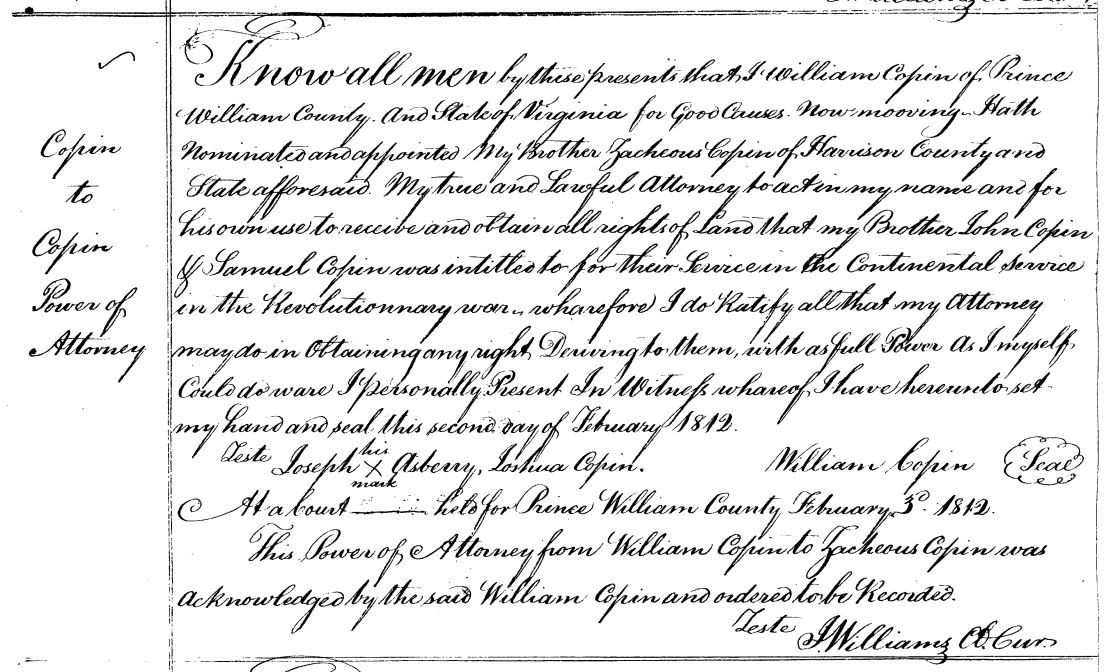 Copin
to
Copin
Power of
Attorney
Know all men by these presents that I William Copin of Prince
William County. And State of Virginia for Good Causes. Now mooving. Hath
Nominated and appointed My Brother Zacheous Copin of Harrison County and
State afforesaid. My true and Lawful Attorney to act in my name and for
his own use to receive and obtain all rights of Land that my Brother John Copin
& Samuel Copin was intitled to for their Service in the Continental Service
in the Revolutionnary war. wharefore I do Ratify all that my Attorney
may do in Obtaining any right Deriving to them, with as full Power As I myself
Could do ware I personally Present In Witness whareof I have hereunto set
my hand and seal this second day of February 1812.
Teste Joseph his X mark Asberry, Joshua Copin. William Copin Seal
At a Court held for Prince William County February 3d. 1812.
This Power of Attorney from William Copin to Zacheous Copin was
acknowledged by the said William Copin and ordered to be Recorded.
Teste
J. Williams Cl. Cur.